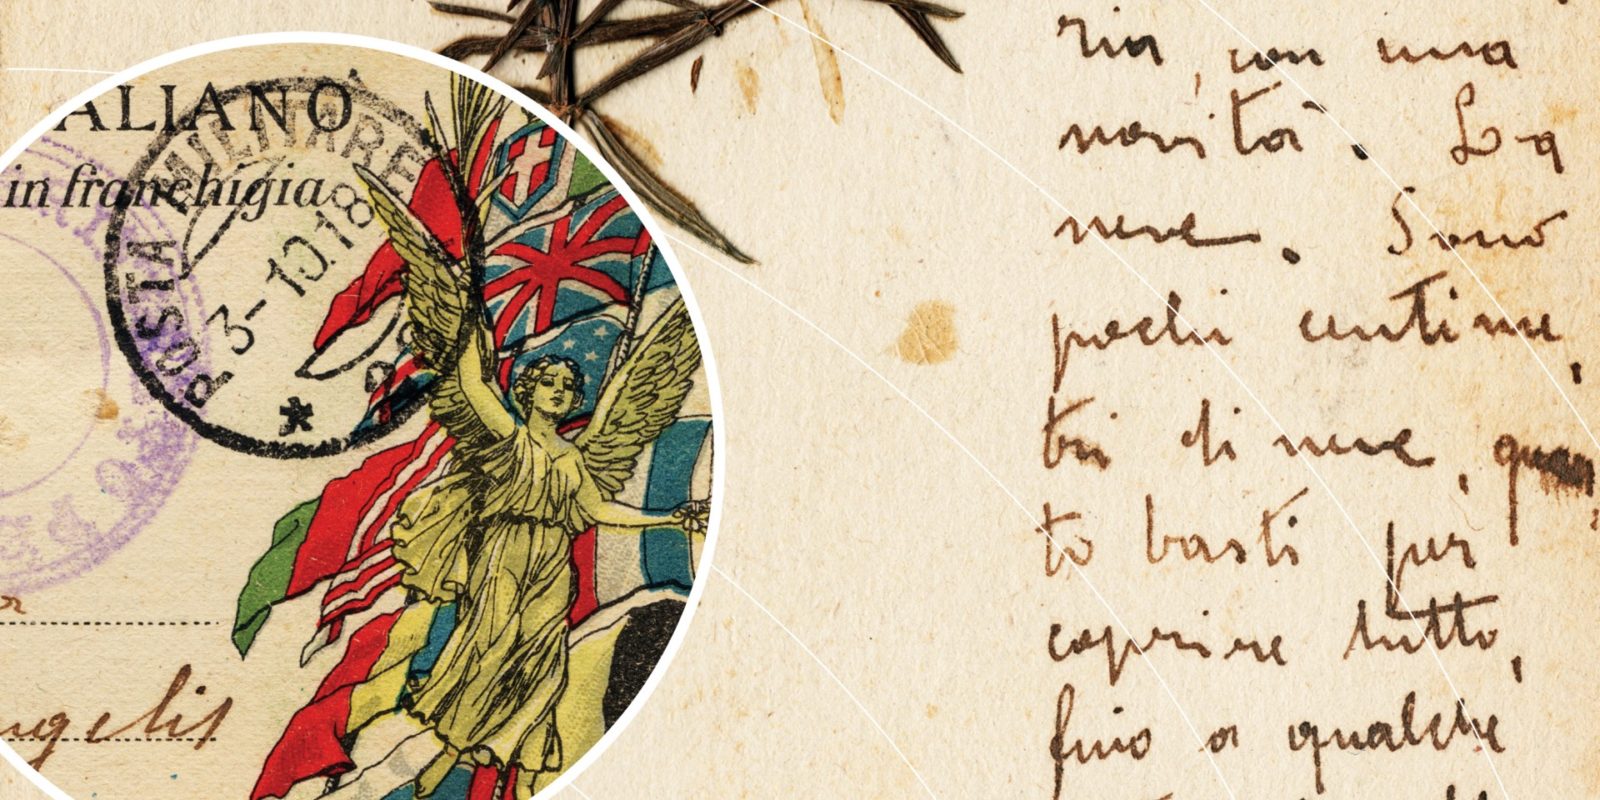 ALIANO
in franchigia
POSTA MILITARE
3-10.18
ngelis
ria, con una
novità. La
neve. Sono
pochi centime,
tri di neve, quan,
to basti per
coprire tutto,
fino a qualche